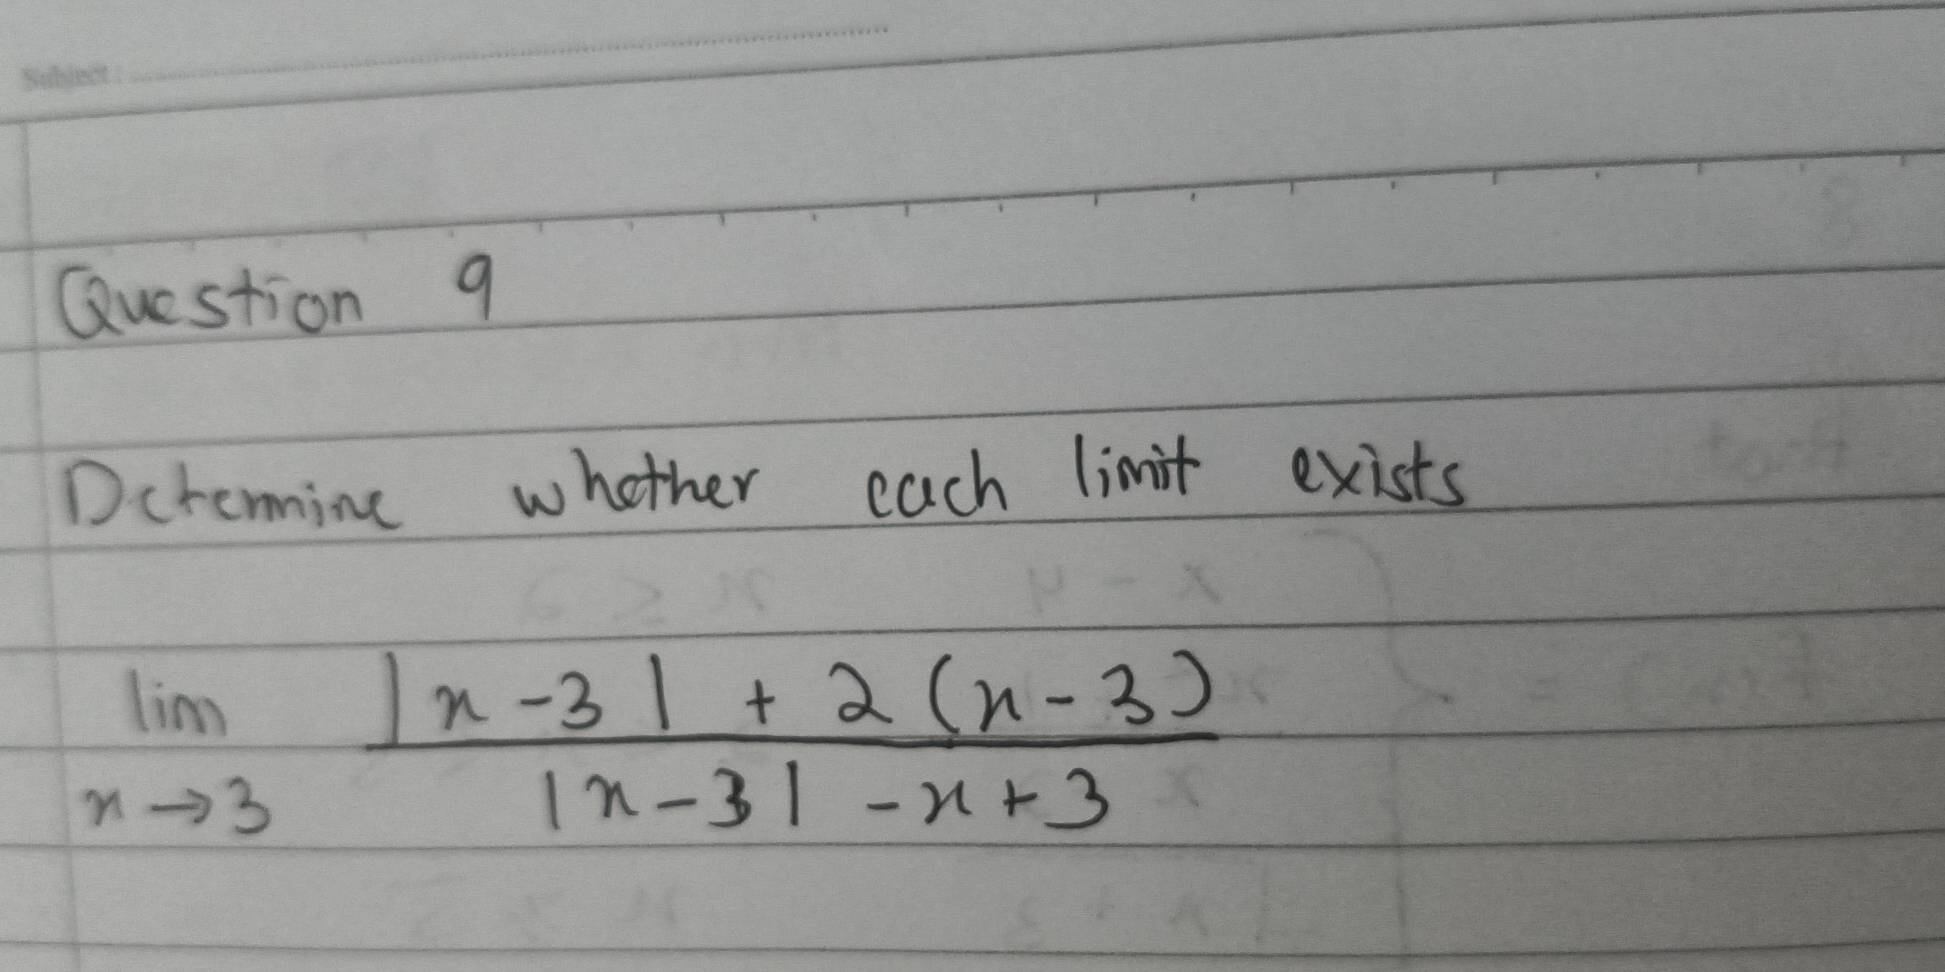 Subject:
Question 9
Determine whether each limit exists
lim |x-3| + 2(x-3)
x→3 |x-3| -x+3